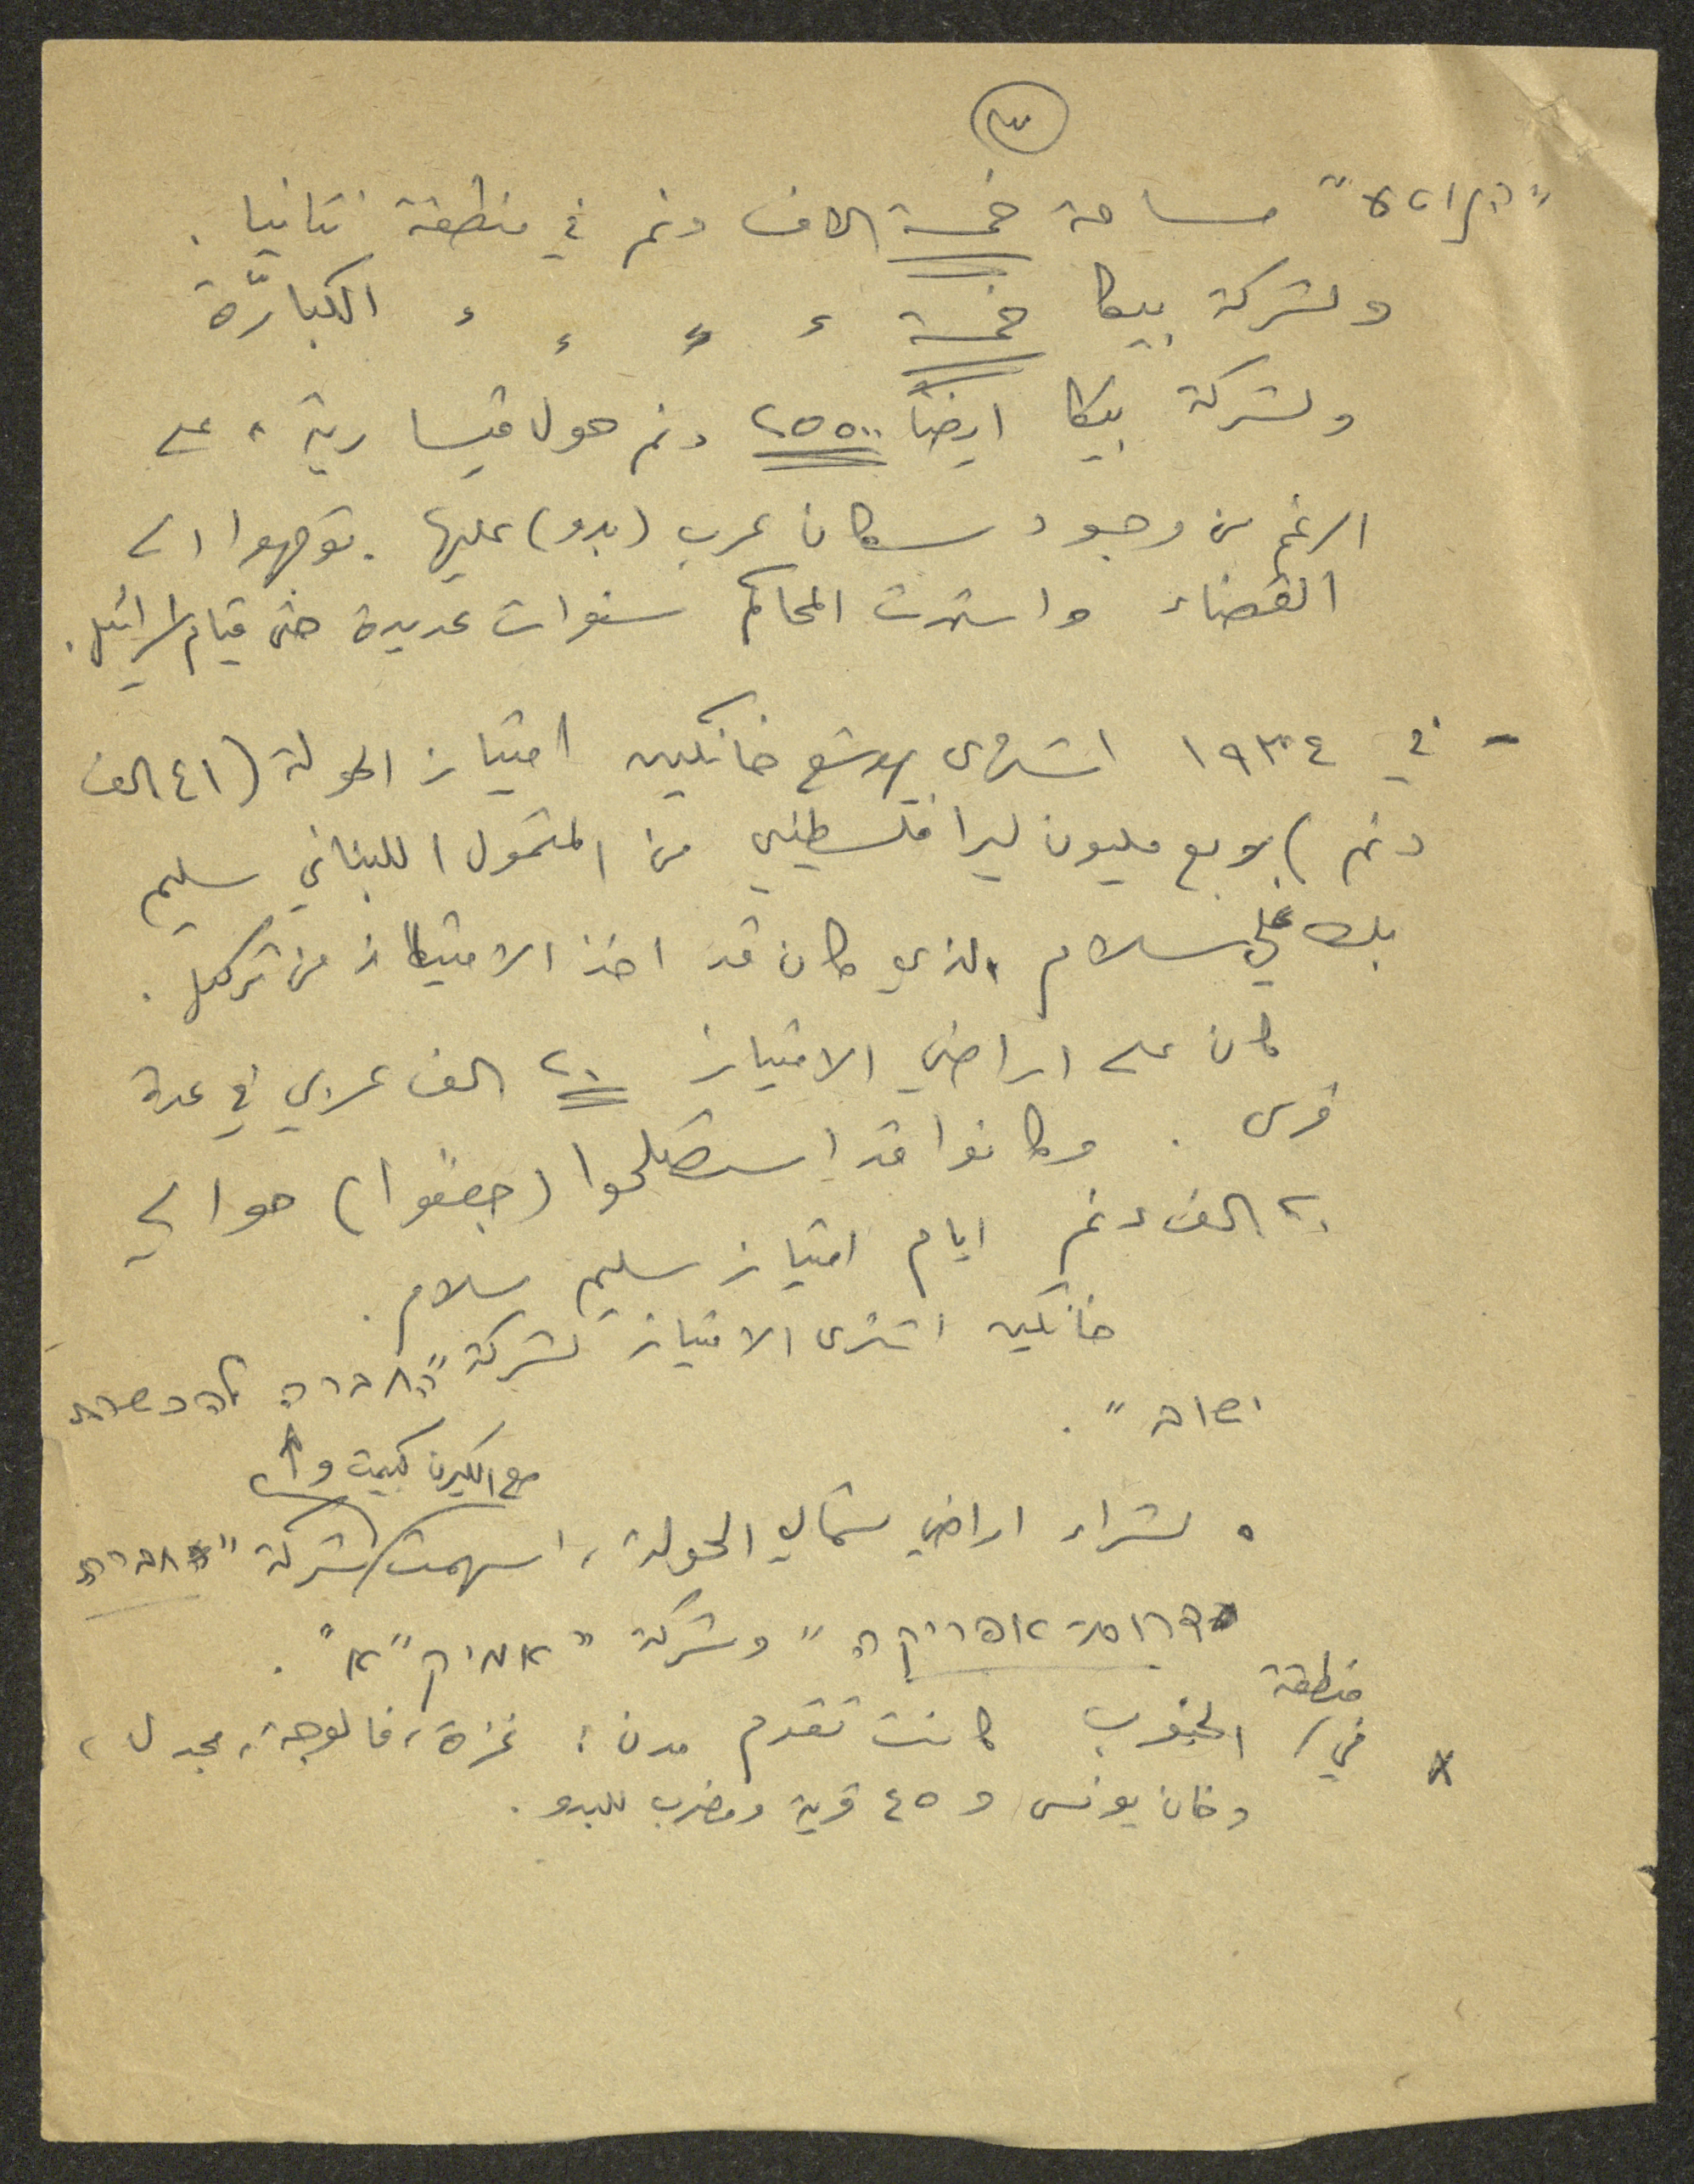 ٣
مساحة خمسة الاف دنم في منطقة نتانيا .
ولشركة بيكا خمسة ء ء ء ء الكبارّة
ولشركة بيكا ايضاً ٢٥٥٠٠ دنم حول قيسارية ، على
الرغم من وجود سكان عرب (بدو) عليها . توجهوا الى
القضاء واستمرت المحاكم سنوات عديدة حتى قيام اسرائيل .
- في ١٩٣٤ اشترى يهوشع خانكين امتياز الحولة (٤١ الف
دنم) بربع مليون ليرا فلسطيني من المتمول اللبناني سليم
بك علي سلام الذي كان قد اخذ الامتياز من تركيا .
كان على اراضي الامتياز ٢٠ الف عربي في عدة
قرى . وكانوا قد استصلحوا (جففوا) حوالي
٢٠ الف دنم ايام امتياز سليم سلام .
خانكين اشترى الامتياز لشركة "החברה להכשרת
ישוב" .
مع الكيرن كييمت و
• لشراء اراضي شمالي الحولة ، اسهمت شركة "חברה
דרום אפריקה" وشركة "אמיק"א" .
منطقة
* في الجنوب كانت تقدم مدن : غزة ، فالوجة ، مجدل ،
وخان يونس و ٤٥ قرية ومضرب للبدو .